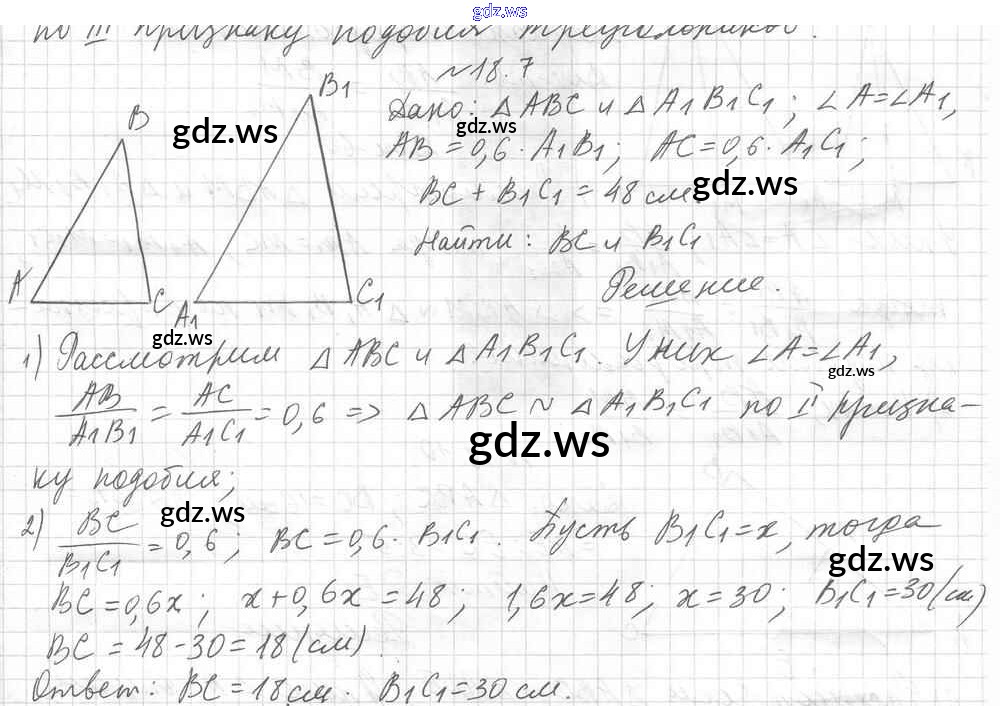 gdz.ws
по III признаку подобия треугольников.
№18.7
B
B1
A
C
A1
C1
Дано: △ABC и △A1B1C1; ∠A=∠A1,
AB=0,6·A1B1; AC=0,6·A1C1;
BC+B1C1=48 см.
Найти: BC и B1C1
Решение.
1) Рассмотрим △ABC и △A1B1C1. У них ∠A=∠A1,
AB/A1B1 = AC/A1C1 = 0,6 => △ABC ~ △A1B1C1 по II призна-
ку подобия;
2) BC/B1C1 = 0,6; BC=0,6·B1C1. Пусть B1C1=x, тогда
BC=0,6x; x+0,6x=48; 1,6x=48; x=30; B1C1=30(см)
BC=48-30=18(см).
Ответ: BC=18см. B1C1=30 см.
gdz.ws
gdz.ws
gdz.ws
gdz.ws
gdz.ws
gdz.ws
gdz.ws
gdz.ws